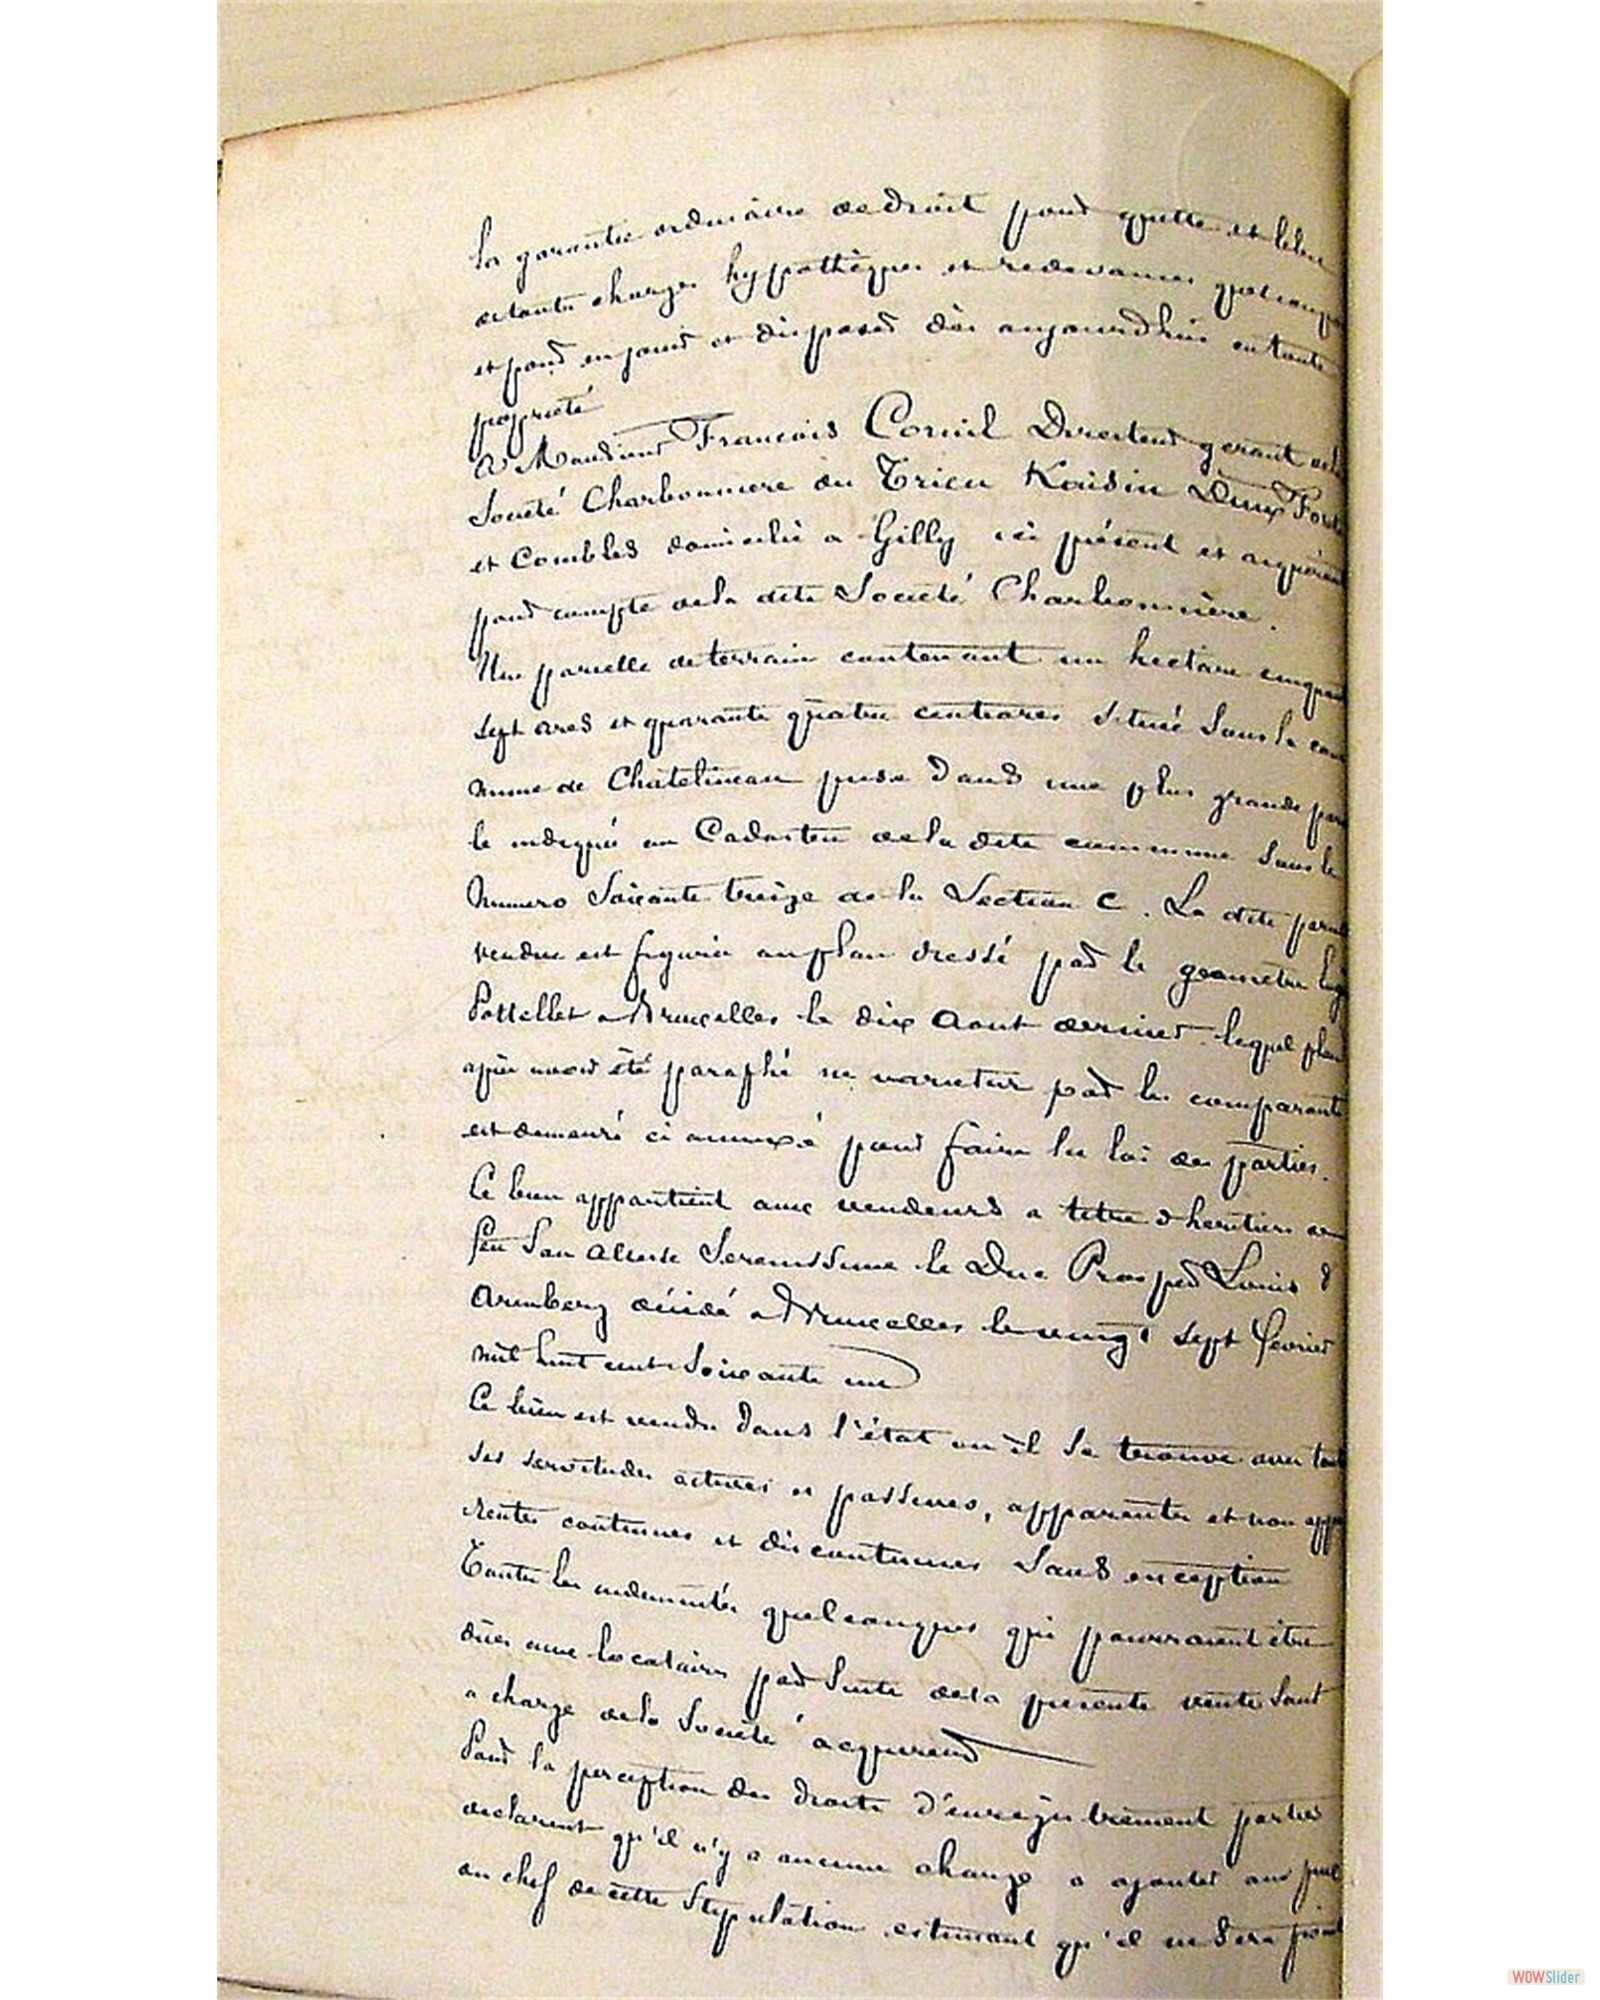 la garantie ordinaire de droit pour quitte et libre
de toute charges hypothèques et redevances quelconques
et pour en jouir et disposer dès aujourdhui en toute
propriété
A Monsieur Francois Cornil Directeur gerant de la
Societé Charbonniere du Trieu Kaisin Deux Forêts
et Combles domicilié a Gilly ici présent et acquérant
pour compte de la dite Societé Charbonnière.
Une parcelle de terrain contenant un hectare cinquante
sept ares et quarante quatre centiares situé sous la com
mune de Chatelineau prise dans une plus grande parcel
le indiqué au Cadastre de la dite commune sous le
Numero Soixante treize de la Section C. La dite parcelle
vendue est figurée au plan dressé par le geometre
Pottellet a Bruxelles le dix Aout dernier lequel plan
après avoir été paraphé ne varietur par les comparants
est demeuré ci annexé pour faire la loi des parties.
Ce bien appartient aux vendeurs a titre d'heritiers de
feu Son Altesse Serenissime le Duc Prosper Louis d'
Aremberg décédé a Bruxelles le vingt sept fevrier
mil huit cent soixante un
Ce bien est vendu dans l'état ou il se trouve avec toutes
ses servitudes actives et passives, apparentes et non appa
rentes continues et discontinues Sans exception
Toutes les indemnités quelconques qui pourraient être
dües aux locataires par suite de la presente vente sont
a charge de la Societé acquereur
Pour la perception des droits d'enregistrement parties
declarent qu'il n'y a aucune charge a ajouter au prix
au chef de cette Stipulation estimant qu'il ne sera point